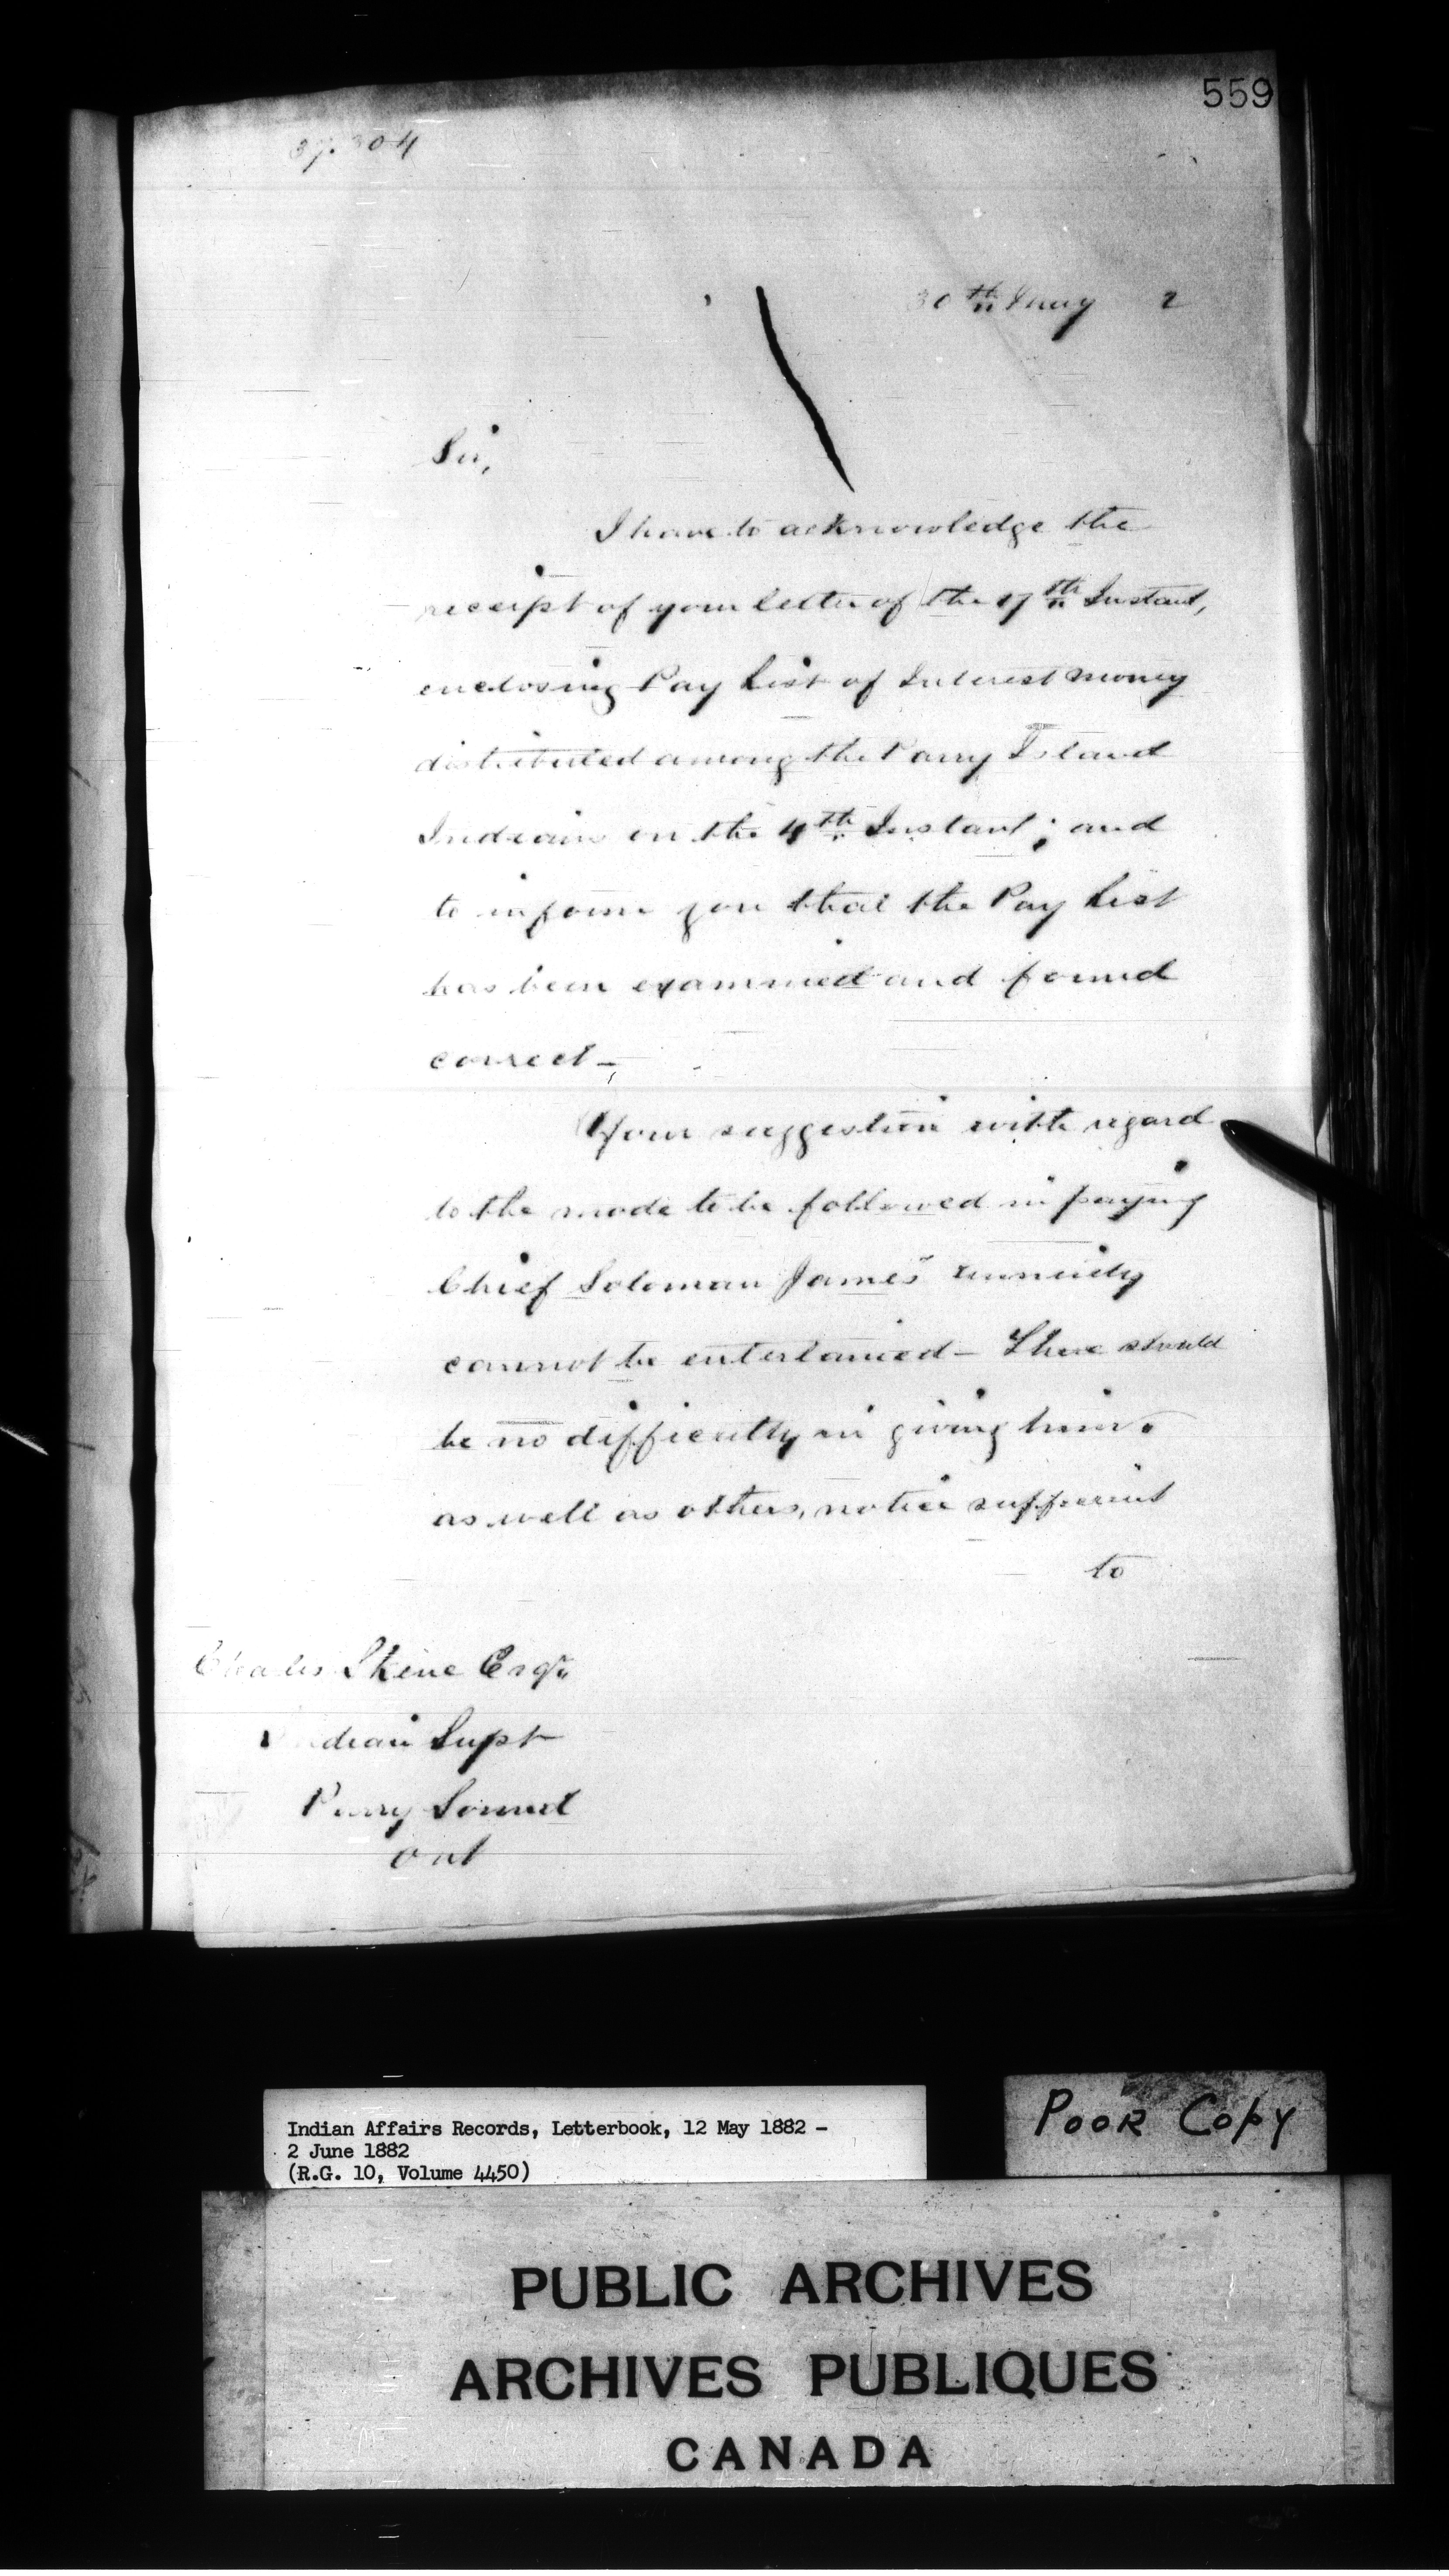 559
37.304
30th May 2
Sir,
I have to acknowledge the
receipt of your letter of the 17th Instant,
enclosing Pay List of Interest money
distributed among the Parry Island
Indians on the 4th Instant; and
to inform you that the Pay List
has been examined and found
correct—
Your suggestion with regard
to the mode to be followed in paying
Chief Soloman James'
cannot be entertained— There should
be no difficulty in giving him,
as well as others, notice sufficient
to
Charles Skene Esqr
Indian Supt
Parry Sound
Ont
Indian Affairs Records, Letterbook, 12 May 1882 -
2 June 1882
(R.G. 10, Volume 4450)
POOR COPY
PUBLIC ARCHIVES
ARCHIVES PUBLIQUES
CANADA